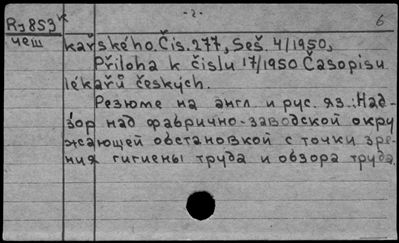 RJ853к - 2 - 6
чеш kařského. Čis. 277, Seš. 4/1950,
Příloha k čislu 17/1950 Časopisu
lékařů českých.
Резюме на англ и рус. яз.: Над-
зор над фабрично-заводской окру
жающей обстановкой с точки зре-
ния гигиены труда и обзора труда.